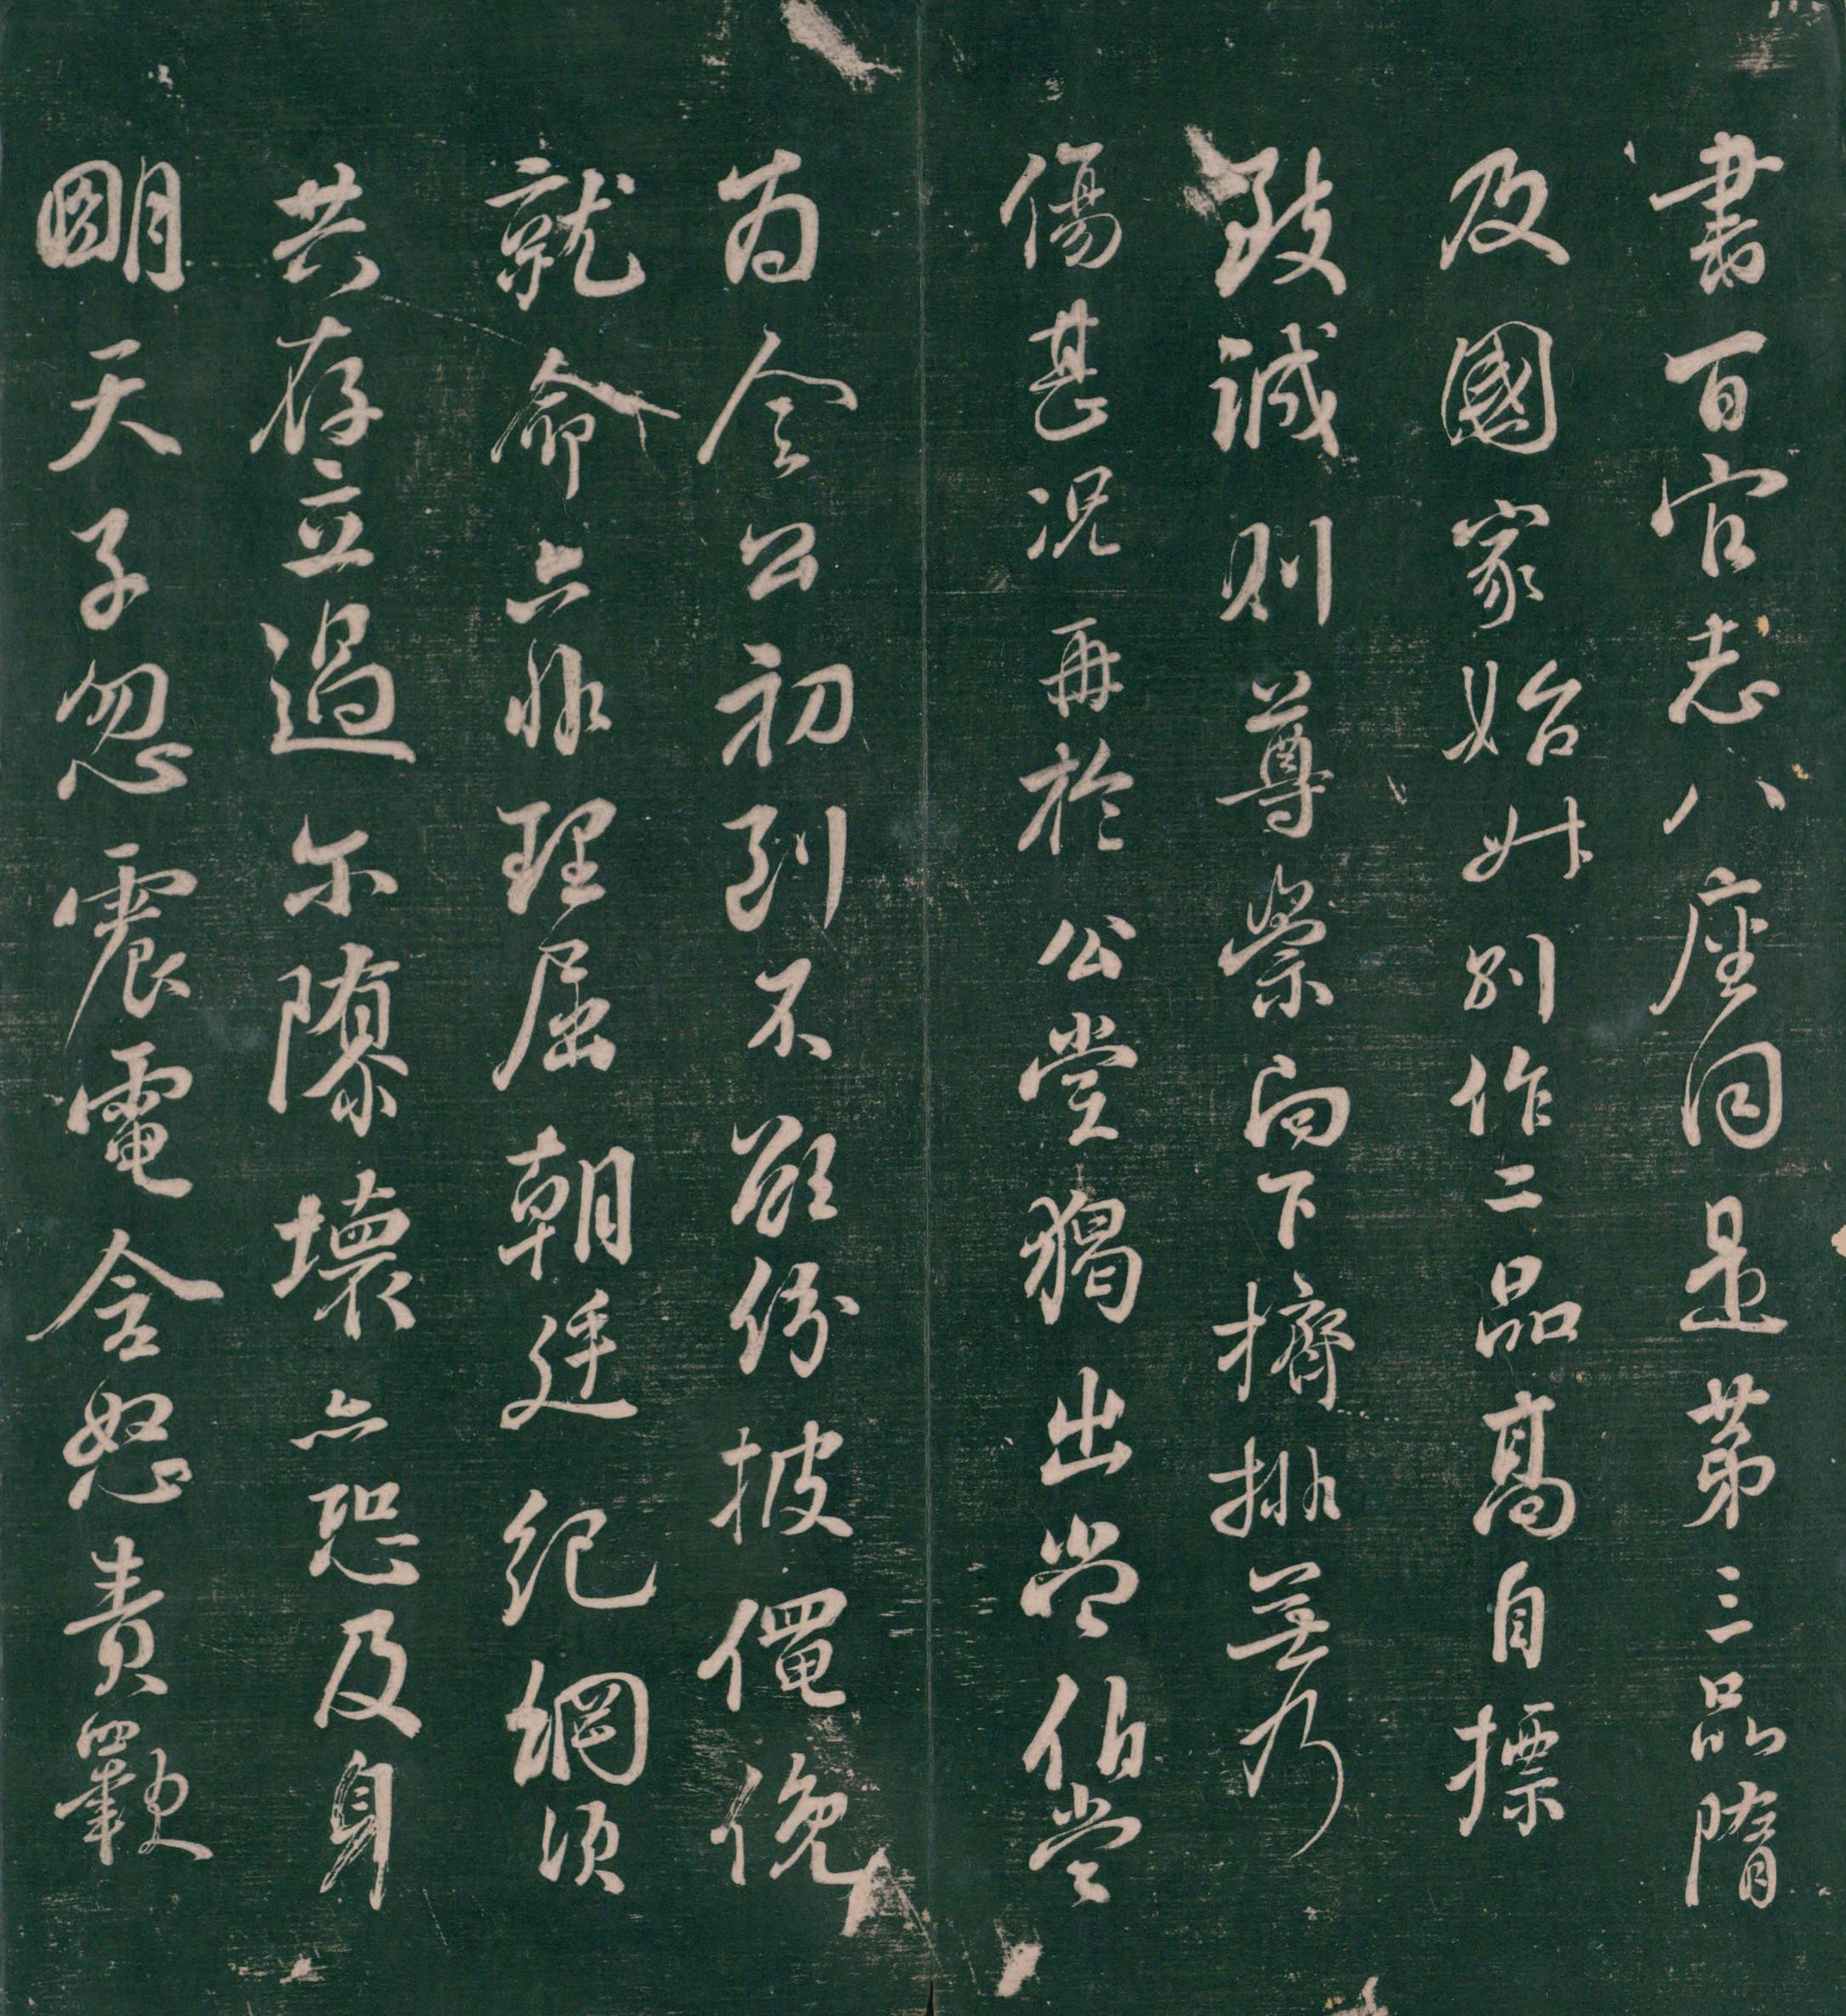 書百官志八座同是第三品隋
及國家始升別作二品高自標
致誠則尊崇向下擠排無乃
傷甚況再於公堂猲咄常伯當
為令公初到不欲紛披僶俛
就命亦非理屈朝廷紀綱須
共存立過尒隳壞亦恐及身
明天子忽震電含怒責斁